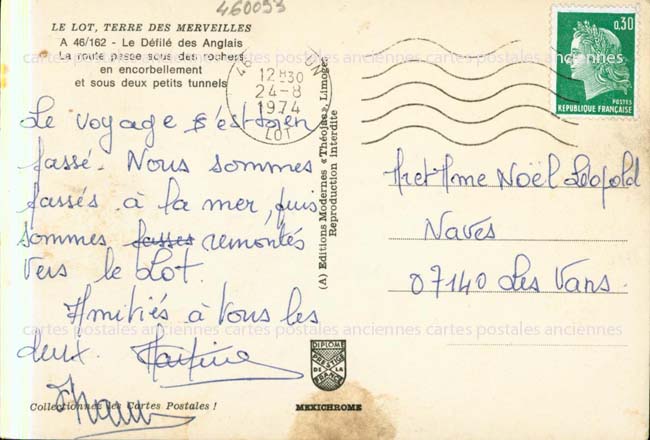 460093
LE LOT, TERRE DES MERVEILLES
A 46/162 - Le Défilé des Anglais
La route passe sous des rochers
en encorbellement
et sous deux petits tunnels
12H30
24-8
1974
LOT
0,30
POSTES
REPUBLIQUE FRANÇAISE
Le voyage s'est bien
passé. Nous sommes
passés à la mer, puis
sommes passés remontés
vers le Lot.
Amitiés à vous les
deux. Martine
(A) Editions Modernes « Théojac », Limoges
Reproduction Interdite
M et Mme Noël Léopold
Naves
07140 Les Vans.
cartes postales anciennes cartes postales anciennes cartes postales anciennes
DIPLOME
PRESTIGE
DE LA
FRANCE
Collectionnez les Cartes Postales !
MEXICHROME